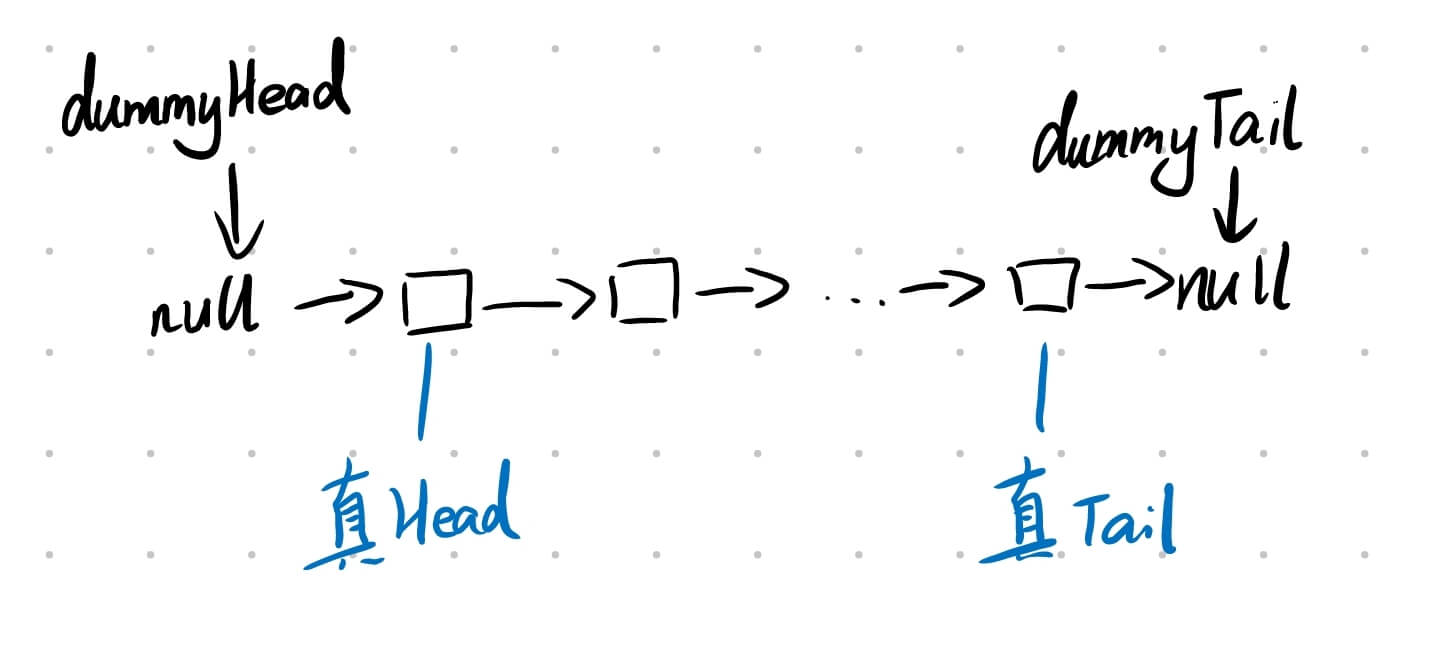 dummyHead
dummyTail
null
...
null
真Head
真Tail